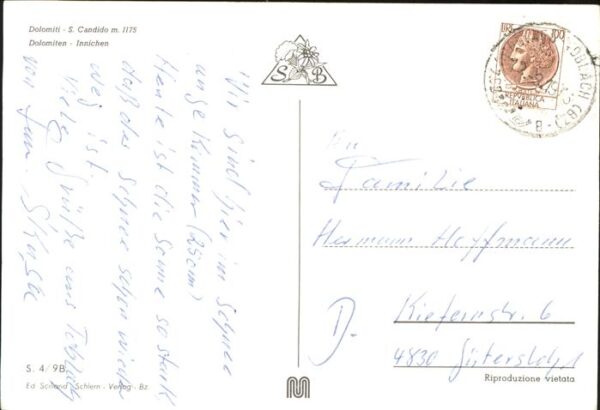 Dolomiti - S. Candido m. 1175
Dolomiten - Innichen
S B
Wir sind hier im Schnee
angekommen (25cm)
Heute ist die Sonne so stark
daß der Schnee schon wieder
weg ist.
Viele Grüße aus Toblach
von Fam.
LIRE 100
REPUBBLICA
ITALIANA
TOBLACH (BZ)
An
Familie
Hermann Hoffmann
D-
Kiefernstr. 6
4830 Gütersloh 1
S. 4/9B.
Ed. Schlern - Verlag - Bz.
Riproduzione vietata